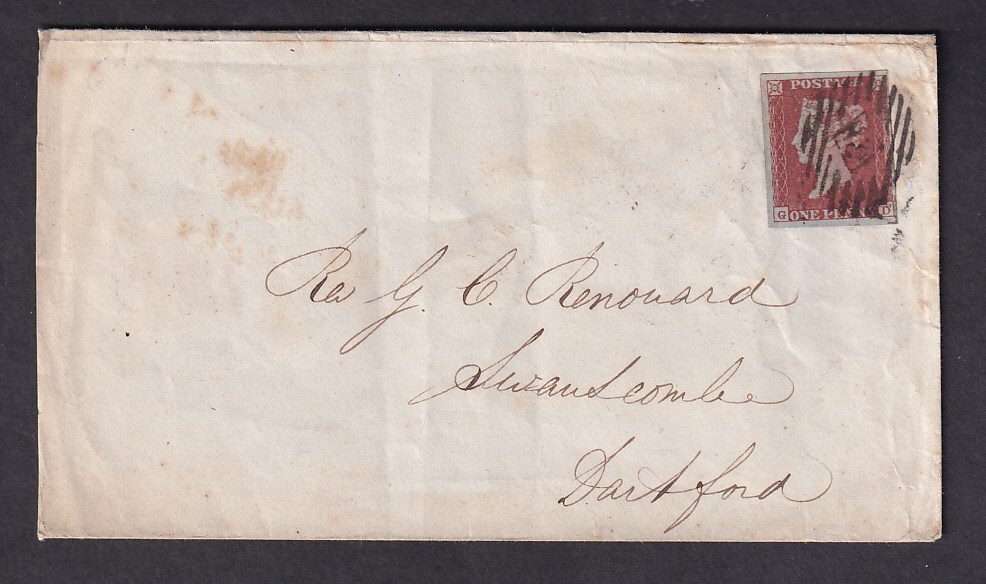 POSTAGE
G ONE PENNY D
Rev G. C. Renouard
Swanscombe
Dartford